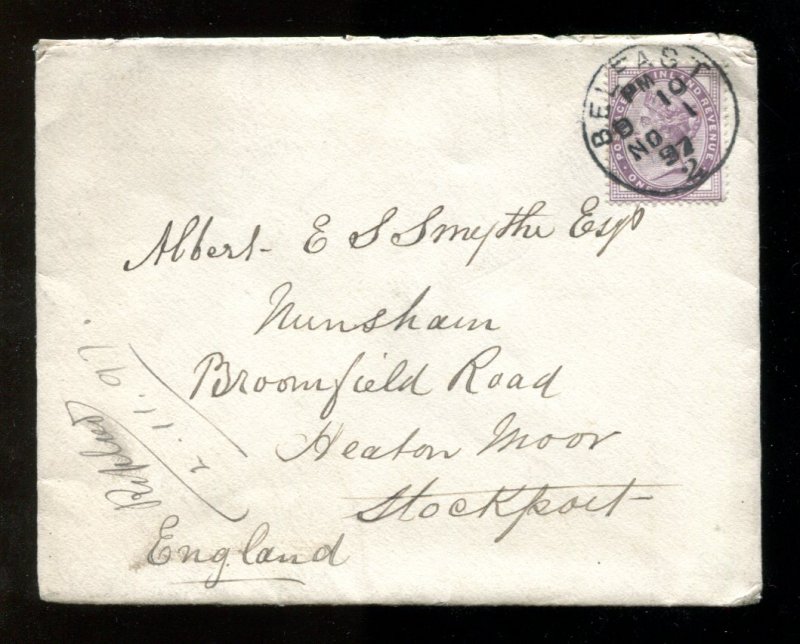 BELFAST
PM 10
NO 1
97
2
POSTAGE INLAND REVENUE
ONE
Albert E S Smythe Esq
Nunsham
Broomfield Road
Heaton Moor
Stockport
England
Replied
2.11.97.